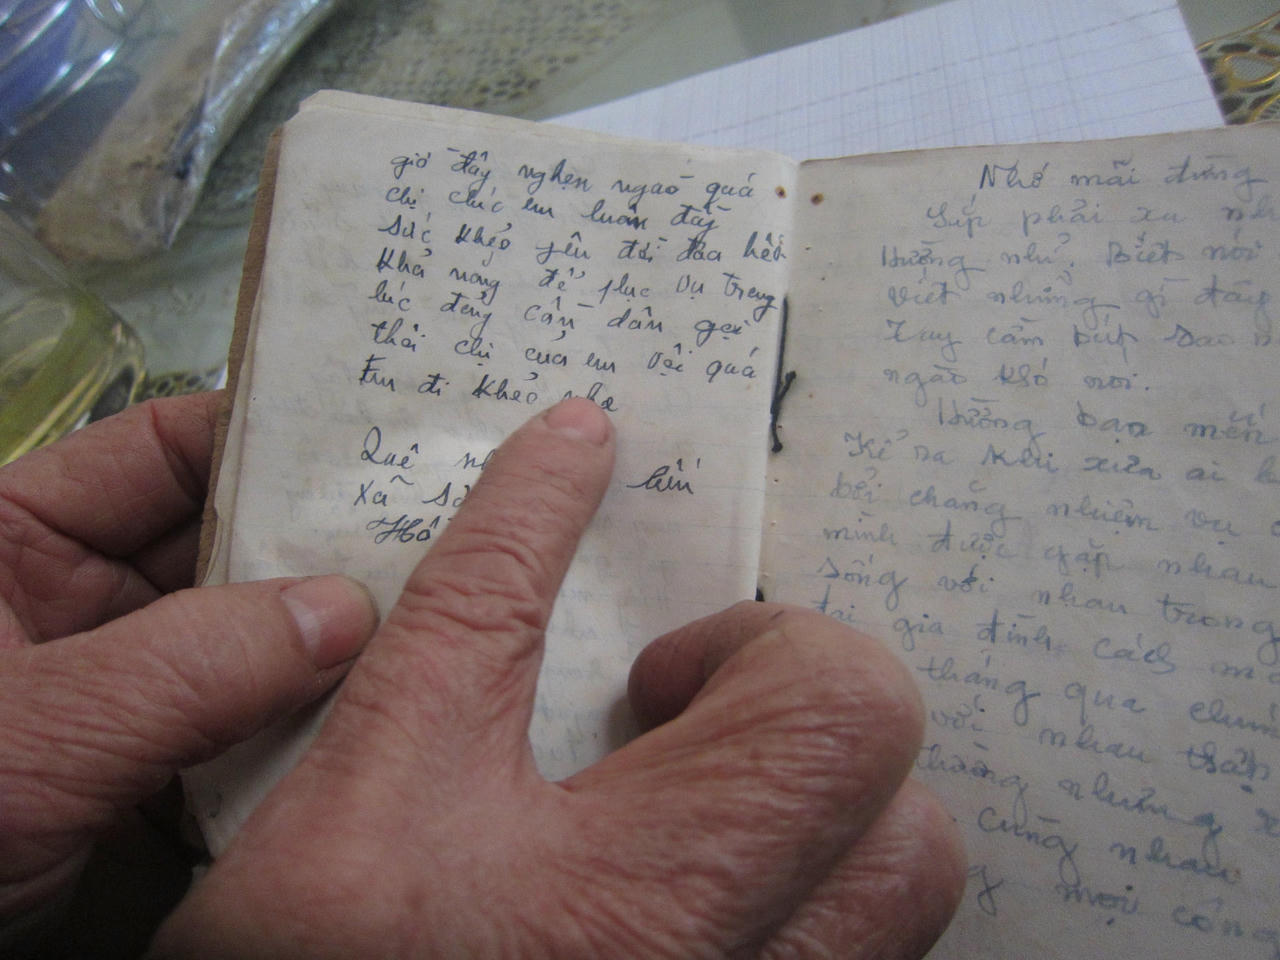 giờ đây nghẹn ngào quá
chị chúc em luôn đầy
sức khỏe yêu đời đem hết
khả năng để phục vụ trong
lúc đảng cần dân gọi
thôi chị của em vội quá
Em đi khỏe nhe
Quê
Xã
Hồ
Nhớ mãi đừng
Sắp phải xa
Hường nhỉ. Biết nói
viết những gì đây
Tay cầm bút sao
ngào khó nói.
Hường bạn mến
Kể ra khi xưa ai
bởi chăng nhiệm vụ
mình được gặp nhau
sống với nhau trong
đại gia đình cách
tháng qua chúng
với nhau thật
những
cùng nhau
mọi công